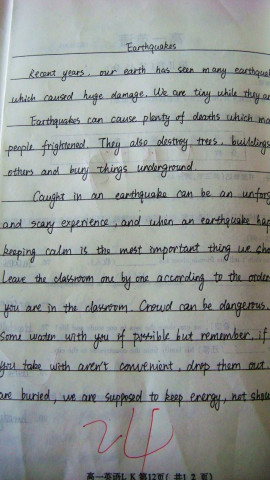 Earthquakes
Recent years, our earth has seen many
which caused huge damage. We are tiny while they
Earthquakes can cause planty of deaths which
people frightened. They also destroy trees, buildings
others and bury things underground.
Caught in an earthquake can be an
and scary experience, and when an earthquake
keeping calm is the most important thing we
Leave the classroom one by one according to the
you are in the classroom. Crowd can be dangerous.
Some water with you if possible but remember, if
you take with aren't convenient, drop them out.
are buried, we are supposed to keep energy, not
24
高一英语L K 第12页( 共1 2 页)